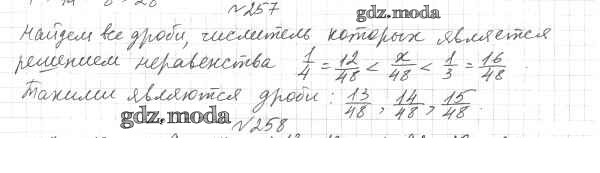 №257
gdz.moda
Найдем все дроби, числитель которых является
решением неравенства 1/4 = 12/48 < x/48 < 1/3 = 16/48.
Такими являются дроби: 13/48, 14/48, 15/48.
gdz.moda
№258